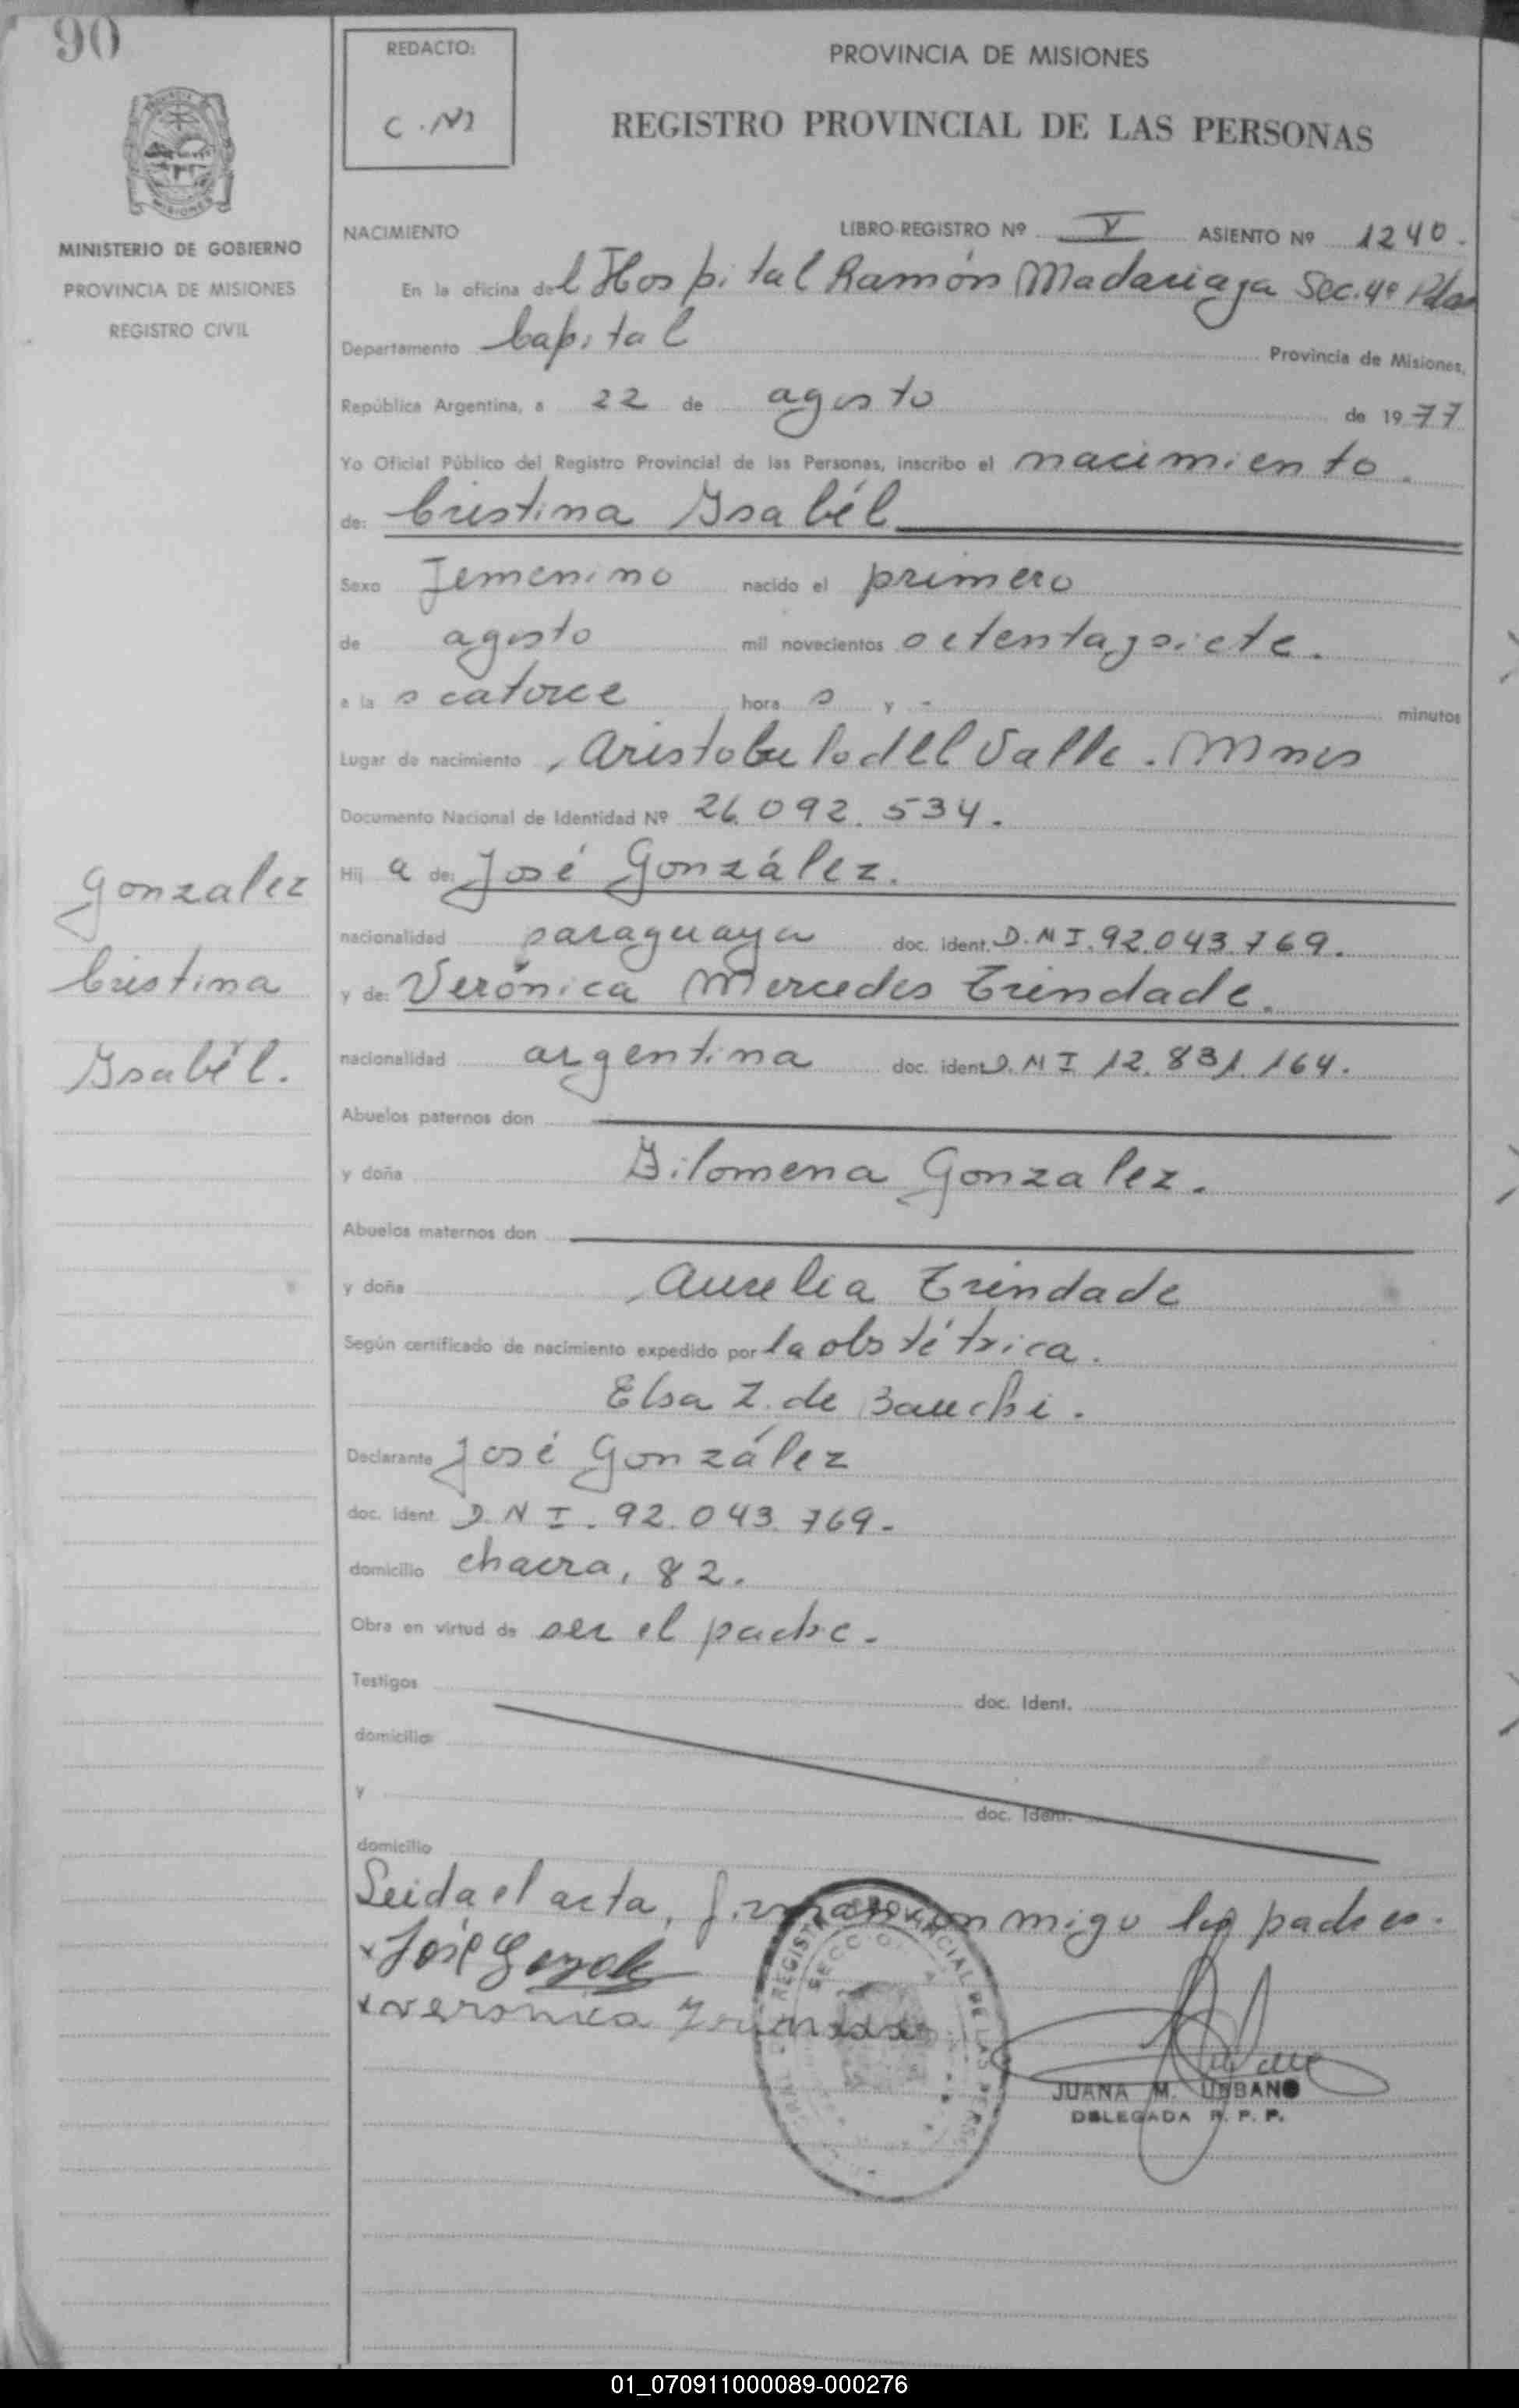 90
REDACTO:
C.N
PROVINCIA DE MISIONES
REGISTRO PROVINCIAL DE LAS PERSONAS
MISIONES
MINISTERIO DE GOBIERNO
PROVINCIA DE MISIONES
REGISTRO CIVIL
NACIMIENTO LIBRO-REGISTRO Nº V ASIENTO Nº 1240.
En la oficina del Hospital Ramón Madariaga Sec. 4º Pdas
Departamento Capital Provincia de Misiones,
República Argentina, a 22 de agosto de 1977
Yo Oficial Público del Registro Provincial de las Personas, inscribo el nacimiento.
de: Cristina Isabél
Sexo Femenino nacido el primero
de agosto mil novecientos setentaysiete.
a la s catorce hora s y - minutos
Lugar de nacimiento Aristobulo del Valle. Mnes
Documento Nacional de Identidad Nº 26.092.534.
Hij a de: José González.
nacionalidad paraguaya doc. ident. D.N I. 92.043.769.
y de: Verónica Mercedes Trindade.
nacionalidad argentina doc. ident. D.N I 12.831.164.
Abuelos paternos don
y doña Filomena Gonzalez.
Abuelos maternos don
y doña Aurelia Trindade
Según certificado de nacimiento expedido por la obstétrica.
Elsa Z. de
Declarante José González
doc. Ident. D.N I. 92.043.769-
domicilio chacra, 82.
Obra en virtud de ser el padre.
Testigos doc. Ident.
domicilio
y doc. Ident.
domicilio
Leida el acta, firman conmigo los padres.
x José Gonzalez
x veronica Trindade
Gonzalez
Cristina
Isabél.
REGISTRO PROVINCIAL DE LAS PERS
SECCION
JUANA M. URBANO
DELEGADA R. P. P.
01_070911000089-000276